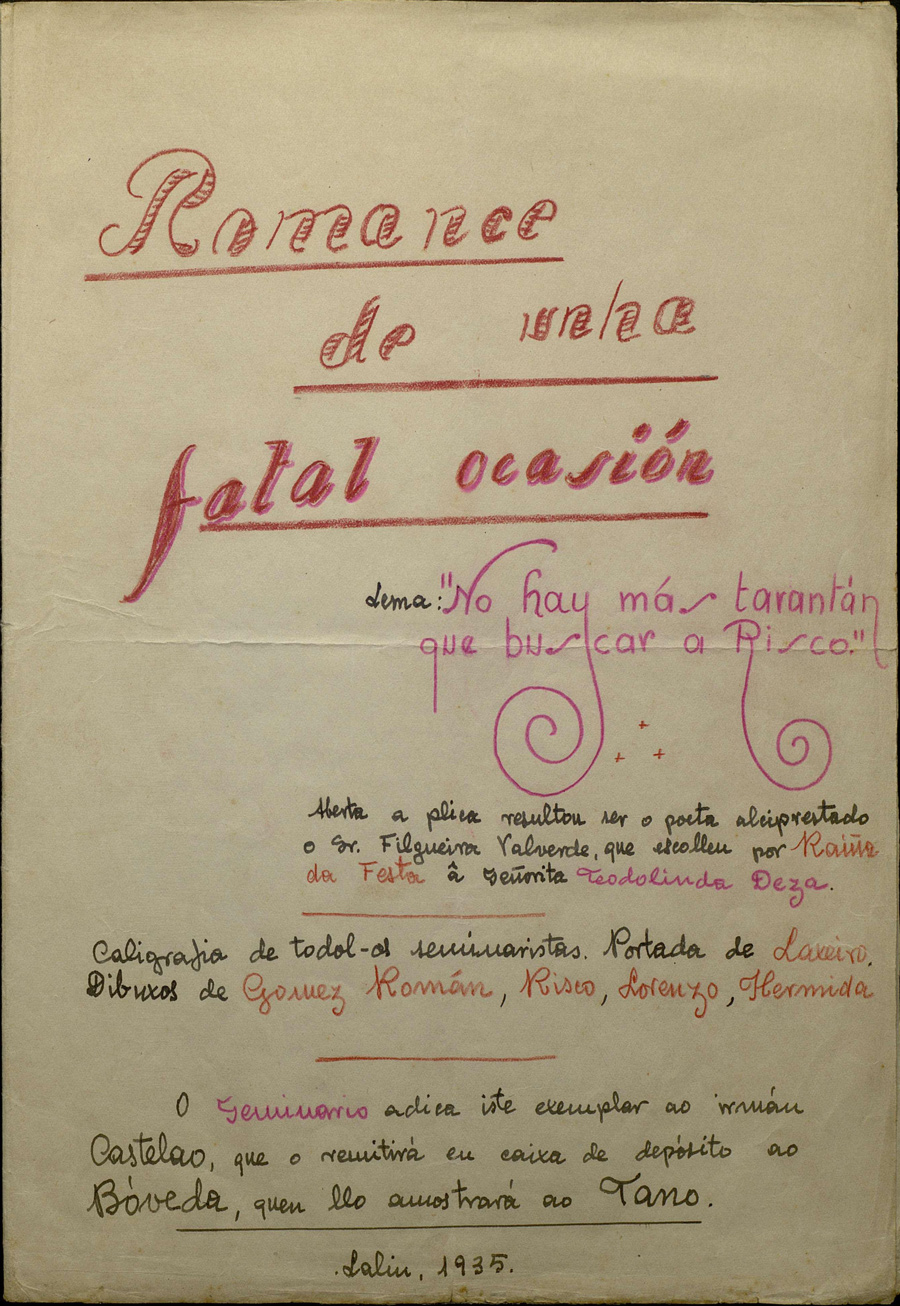 Romance
de un/ha
fatal ocasión
Lema: "No hay más tarantán
que buscar a Risco."
Aberta a plica resultou ser o poeta alciprestado
o Sr. Filgueira Valverde, que escolleu por Raíña
da Festa â Señorita Teodolinda Deza.
Caligrafia de todol-os seminaristas. Portada de Laxeiro.
Dibuxos de Gomez Román, Risco, Lorenzo, Hermida
O Seminario adica iste exemplar ao irmán
Castelao, que o remitirá en caixa de depósito ao
Bóveda, quen llo amostrará ao Tano.
Lalin, 1935.